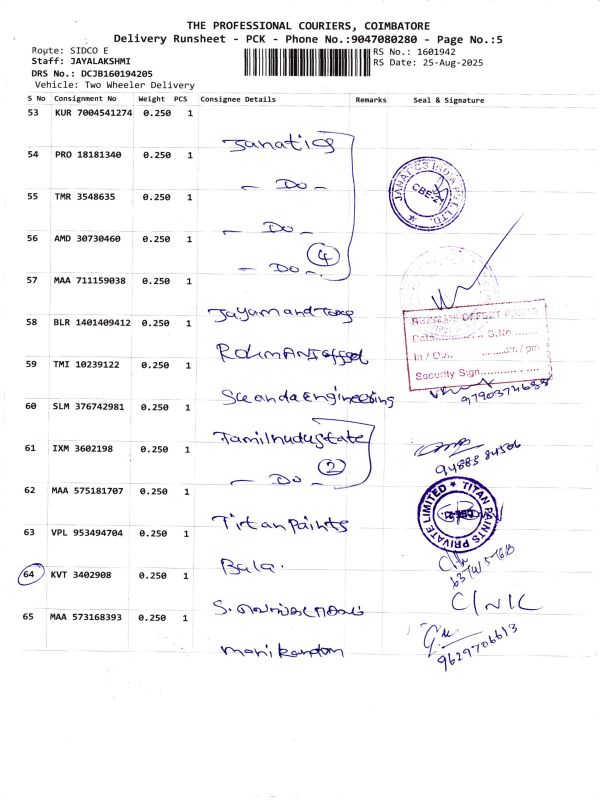 THE PROFESSIONAL COURIERS, COIMBATORE
Delivery Runsheet - PCK - Phone No.:9047080280 - Page No.:5
Route: SIDCO E
RS No.: 1601942
Staff: JAYALAKSHMI
RS Date: 25-Aug-2025
DRS No.: DCJB160194205
Vehicle: Two Wheeler Delivery
S No Consignment No Weight PCS Consignee Details Remarks Seal & Signature
53 KUR 7004541274 0.250 1
Janatics
54 PRO 18181340 0.250 1
- Do -
JANATICS INDIA PVT. LTD.
CBE-21
55 TMR 3548635 0.250 1
- Do -
56 AMD 30730460 0.250 1
4
- Do -
57 MAA 711159038 0.250 1
Jayam and Tong
58 BLR 1401409412 0.250 1
OFFSET
Date S.No
Rohmani offset
In / Out am / pm
59 TMI 10239122 0.250 1
Security Sign
Sce anda Engineering
9790374688
60 SLM 376742981 0.250 1
Tamilnudu state
61 IXM 3602198 0.250 1
2
94883 84506
- Do -
62 MAA 575181707 0.250 1
TITAN PAINTS PRIVATE LIMITED
Tirtan Paints
63 VPL 953494704 0.250 1
Bala.
64 KVT 3402908 0.250 1
S.
65 MAA 573168393 0.250 1
manikandan
9629706613